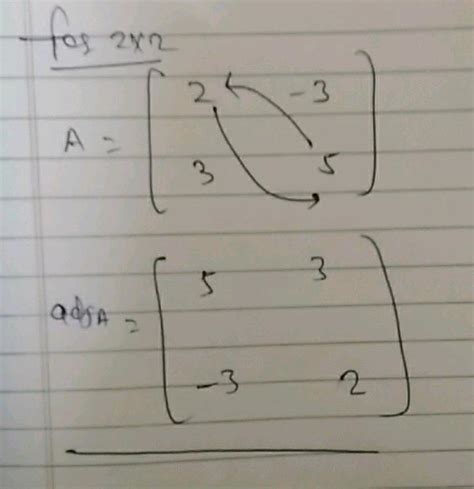 for 2x2
A = [ 2 -3
3 5 ]
adjA = [ 5 3
-3 2 ]